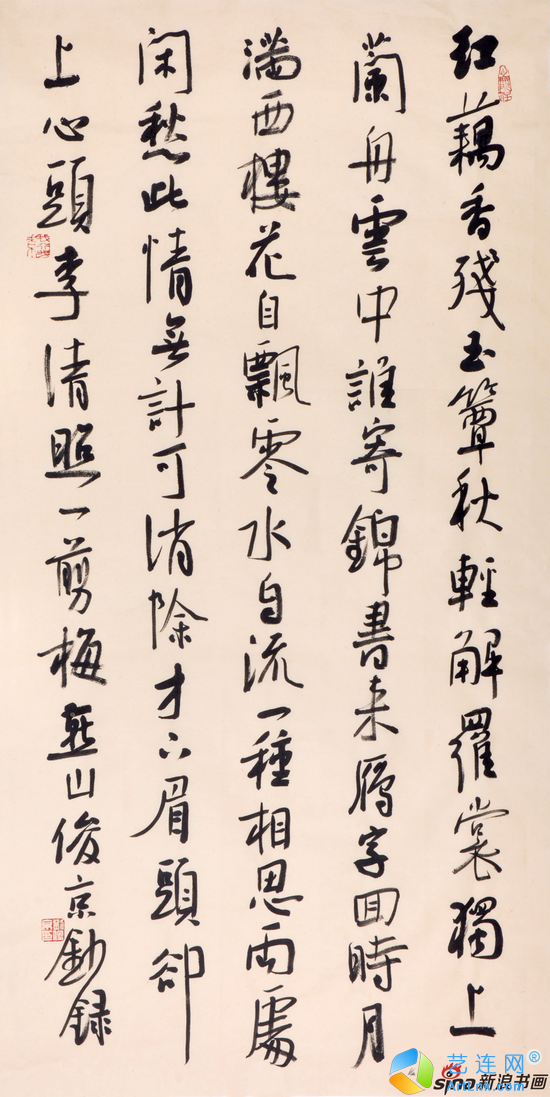 红藕香殘玉簟秋輕解羅裳獨上
蘭舟雲中誰寄錦書来鴈字回時月
滿西樓花自飄零水自流一種相思兩處
闲愁此情無計可消除才下眉頭卻
上心頭李清照一剪梅燕山俊京鈔録
艺连网
sina新浪书画